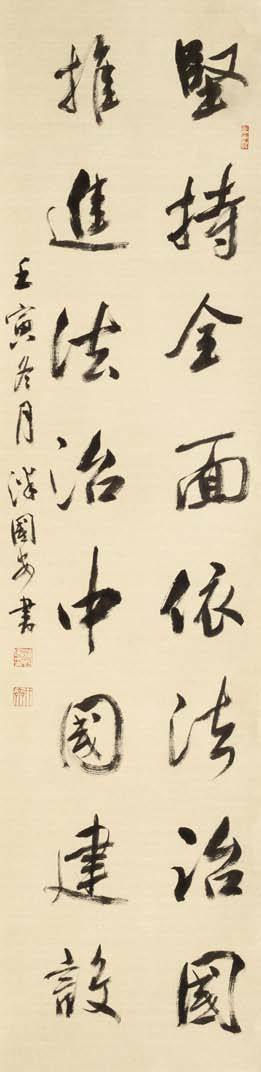 堅持全面依法治國
推進法治中國建設
壬寅冬月 國安書